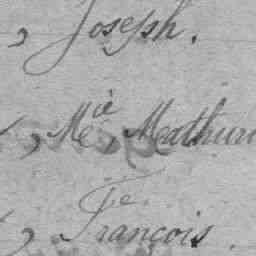 , Joseph.
, M^cie, Mathuri
Fe
, François.